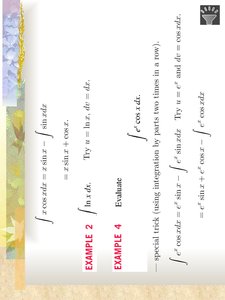 ∫ x cos x dx = x sin x − ∫ sin x dx
= x sin x + cos x.
EXAMPLE 2 ∫ ln x dx. Try u = ln x, dv = dx.
EXAMPLE 4 Evaluate
∫ eˣ cos x dx.
— special trick (using integration by parts two times in a row).
∫ eˣ cos x dx = eˣ sin x − ∫ eˣ sin x dx Try u = eˣ and dv = cos x dx.
= eˣ sin x + eˣ cos x − ∫ eˣ cos x dx